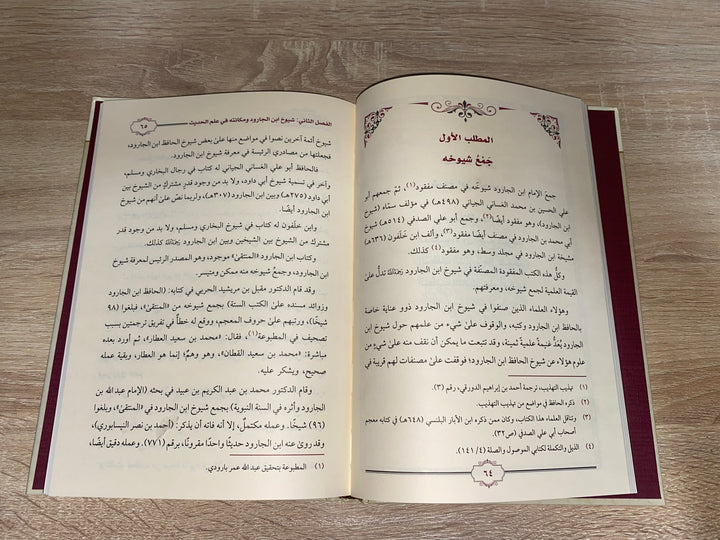 المطلب الأول
جَمْعُ شيوخه
جمعَ الإمام ابن الجارود شيوخَه في مصنف مفقود(١)، ثمَّ جمعهم أبو
علي الحسين بن محمد الغساني الجياني (٤٩٨هـ) في مؤلف سمَّاه (شيوخ
ابن الجارود)، وهو مفقود أيضًا(٢)، وجمع أبو علي الصدفي (٥١٤هـ) شيوخ
أبي محمد بن الجارود في مصنف أيضًا مفقود(٣)، وألف ابن خَلْفُون (٦٣٦هـ)
مشيخة ابن الجارود في مجلد وسط، وهو مفقود(٤) كذلك.
وكلُّ هذه الكتب المفقودة المصنَّفة في شيوخ ابن الجارود رَحِمَهُ اللَّهُ تدلُّ على
القيمة العلمية لجمع شيوخه، ومعرفتهم.
وهؤلاء العلماء الذين صنفوا في شيوخ ابن الجارود ذوو عناية خاصة
بالحافظ ابن الجارود وكتبه، والوقوف على شيءٍ من علمهم حول شيوخ ابن
الجارود يُعدُّ غنيمة علمية ثمينة، وقد تتبعت ما يمكن أن نقف منه على شيءٍ من
علوم هؤلاء عن شيوخ الحافظ ابن الجارود؛ فوقفت على مصنفات لهم قريبة في
(١) تهذيب التهذيب، ترجمة أحمد بن إبراهيم الدورقي، رقم (٣).
(٢) ذكره الحافظ في مواضع من تهذيب التهذيب.
(٣) وتناقل العلماء هذا الكتاب، وكان ممن ذكره ابن الأبار البلنسي (٦٤٨هـ) في كتابه معجم
أصحاب أبي علي الصدفي (ص٣٢).
(٤) الذيل والتكملة لكتابي الموصول والصلة (٤/ ١٤١).
٦٤
الفصل الثاني: شيوخ ابن الجارود ومكانته في علم الحديث
٦٥
شيوخ أئمة آخرين نصوا في مواضع منها على بعض شيوخ الحافظ ابن الجارود،
فجعلتها من مصادري الرئيسة في معرفة شيوخ ابن الجارود.
فالحافظ أبو علي الغساني الجياني له كتاب في رجال البخاري ومسلم،
وآخر في تسمية شيوخ أبي داود، ولا بد من وجود قدرٍ مشتركٍ من الشيوخ بين
أبي داود (٢٧٥هـ) وبين ابن الجارود (٣٠٧هـ)، ولربما نصَّ على أنهم من شيوخ
ابن الجارود أيضًا.
وابن خَلْفون له كتاب في شيوخ البخاري ومسلم، ولا بد من وجود قدر
مشترك من الشيوخ بين الشيخين وبين ابن الجارود رَحِمَهُ اللَّهُ كذلك.
وكتاب ابن الجارود «المنتقى» موجود، وهو المصدر الرئيس لمعرفة شيوخ
ابن الجارود، وجمعُ شيوخه منه ممكن ومتيسر.
وقد قام الدكتور مقبل بن مريشيد الحربي في كتابه: (الحافظ ابن الجارود
وزوائد مسنده على الكتب الستة) بجمع شيوخه من «المنتقى»، فبلغوا (٩٨
شيخًا)، ورتبهم على حروف المعجم، ووقع له خطأ في تفريق ترجمتين بسبب
تصحيف في المطبوعة(١)، فقال: «محمد بن سعيد العطار»، ثم أورد بعده
مباشرة: «محمد بن سعيد القطان»، وهو وهمٌ؛ إنما هو العطار، وبقية عمله
صحيح، ويشكر عليه.
وقام الدكتور محمد بن عبد الكريم بن عبيد في بحثه (الإمام عبد الله بن
الجارود وأثره في السنة النبوية) بجمع شيوخ ابن الجارود في «المنتقى»، وبلغوا
(٩٦) شيخًا. وعمله مكتملٌ، إلا أنه فاته أن يذكر: (أحمد بن نصر النيسابوري)،
وقد روى عنه ابن الجارود حديثًا واحدًا مقرونًا، برقم (٧٧١). وعمله دقيق أيضًا،
(١) المطبوعة بتحقيق عبد الله عمر بارودي.